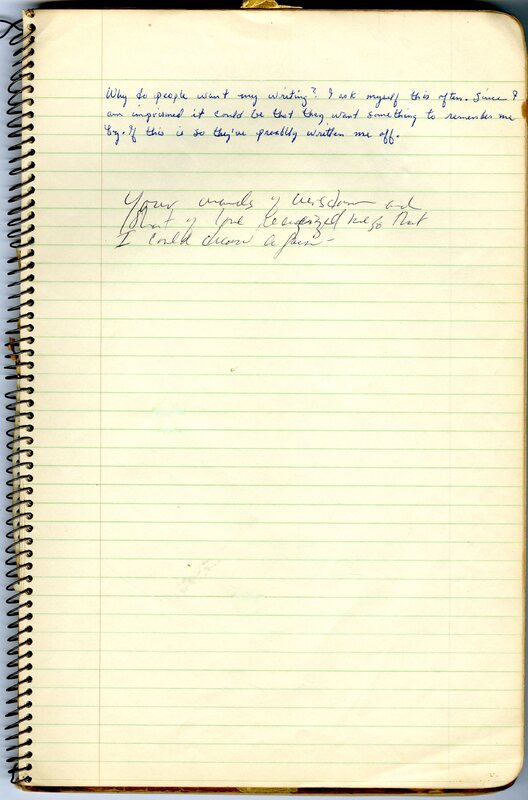 Why do people want my writing? I ask myself this often. Since I
am imprisoned it could be that they want something to remember me
by. If this is so they've preably written me off.
Your words of wisdom and
of love me so that
I could dream again-